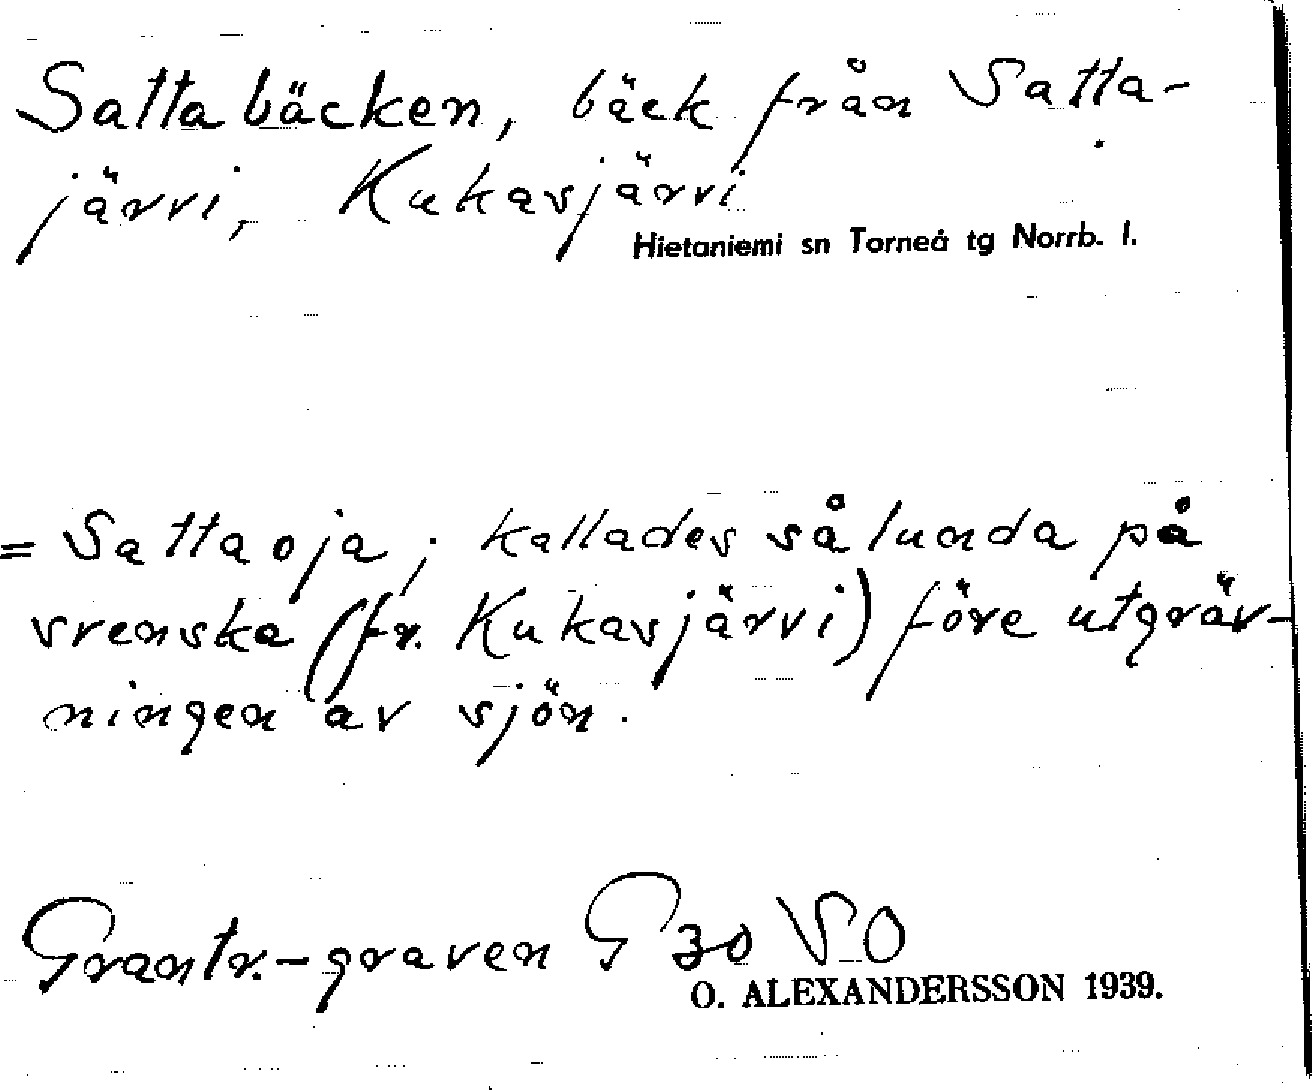 Sattabäcken, bäck från Satta-
järvi, Kukasjärvi
Hietaniemi sn Torneå tg Norrb. l.
= Sattaoja; kallades sålunda på
svenska (fr. Kukasjärvi) före utgräv-
ningen av sjön.
Grantr.-graven G 30 SO
O. ALEXANDERSSON 1939.